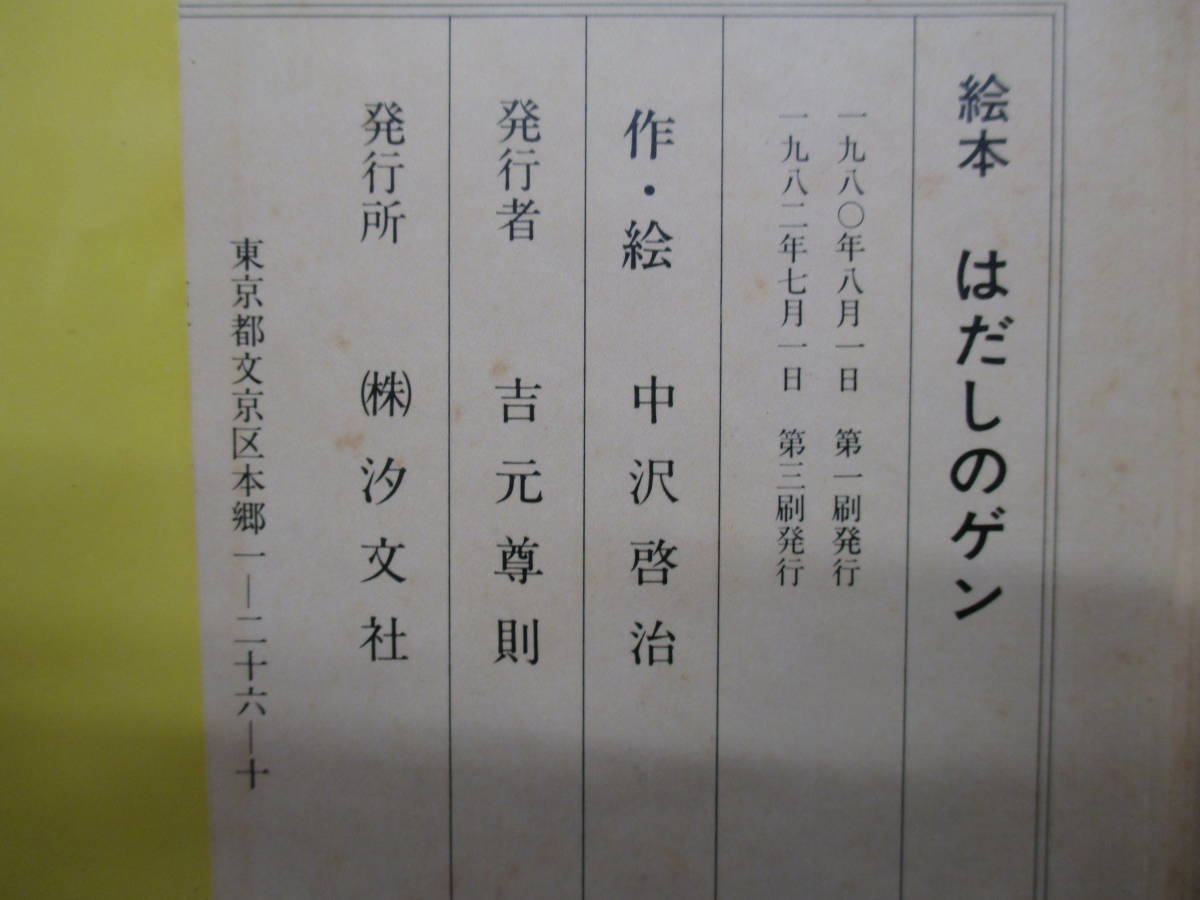 絵本 はだしのゲン
一九八〇年八月一日 第一刷発行
一九八二年七月一日 第三刷発行
作・絵 中沢啓治
発行者 吉元尊則
発行所 ㈱汐文社
東京都文京区本郷一―二十六―十